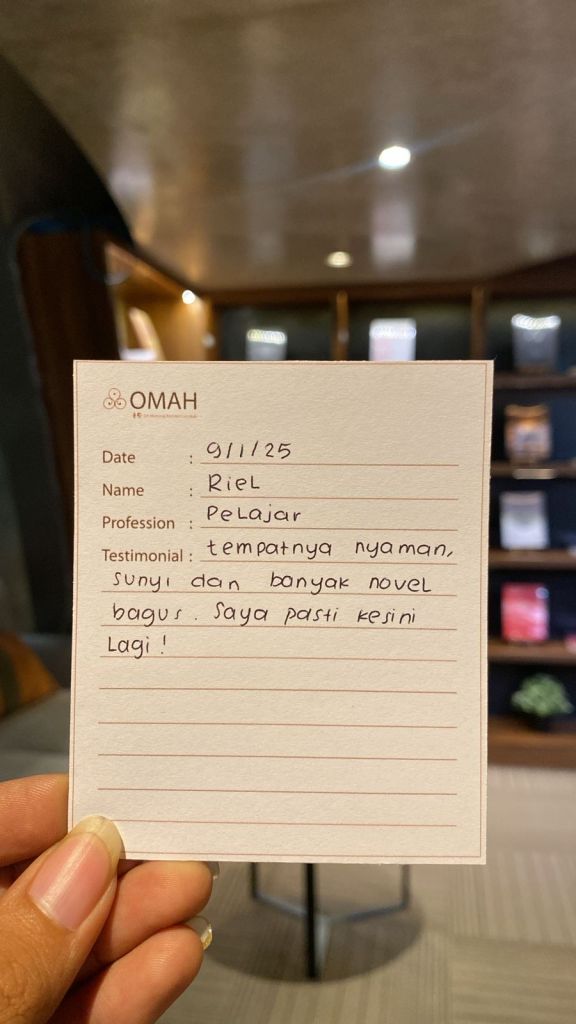 OMAH
Date : 9/1/25
Name : RieL
Profession : PeLajar
Testimonial : tempatnya nyaman,
sunyi dan banyak novel
bagus. Saya pasti kesini
Lagi!